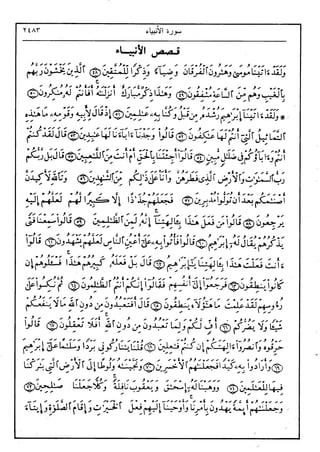 سورة الأنبياء ٢٤٨٣
قصص الأنبياء
وَلَقَدْ ءَاتَيْنَا مُوسَىٰ وَهَٰرُونَ ٱلْفُرْقَانَ وَضِيَآءً وَذِكْرًا لِّلْمُتَّقِينَ ٤٨ ٱلَّذِينَ يَخْشَوْنَ رَبَّهُم
بِٱلْغَيْبِ وَهُم مِّنَ ٱلسَّاعَةِ مُشْفِقُونَ ٤٩ وَهَٰذَا ذِكْرٌ مُّبَارَكٌ أَنزَلْنَٰهُ أَفَأَنتُمْ لَهُۥ مُنكِرُونَ ٥٠
* وَلَقَدْ ءَاتَيْنَآ إِبْرَٰهِيمَ رُشْدَهُۥ مِن قَبْلُ وَكُنَّا بِهِۦ عَٰلِمِينَ ٥١ إِذْ قَالَ لِأَبِيهِ وَقَوْمِهِۦ مَا هَٰذِهِ
ٱلتَّمَاثِيلُ ٱلَّتِىٓ أَنتُمْ لَهَا عَٰكِفُونَ ٥٢ قَالُوا۟ وَجَدْنَآ ءَابَآءَنَا لَهَا عَٰبِدِينَ ٥٣ قَالَ لَقَدْ كُنتُمْ
أَنتُمْ وَءَابَآؤُكُمْ فِى ضَلَٰلٍ مُّبِينٍ ٥٤ قَالُوٓا۟ أَجِئْتَنَا بِٱلْحَقِّ أَمْ أَنتَ مِنَ ٱللَّٰعِبِينَ ٥٥ قَالَ بَل رَّبُّكُمْ
رَبُّ ٱلسَّمَٰوَٰتِ وَٱلْأَرْضِ ٱلَّذِى فَطَرَهُنَّ وَأَنَا۠ عَلَىٰ ذَٰلِكُم مِّنَ ٱلشَّٰهِدِينَ ٥٦ وَتَٱللَّهِ لَأَكِيدَنَّ
أَصْنَٰمَكُم بَعْدَ أَن تُوَلُّوا۟ مُدْبِرِينَ ٥٧ فَجَعَلَهُمْ جُذَٰذًا إِلَّا كَبِيرًا لَّهُمْ لَعَلَّهُمْ إِلَيْهِ
يَرْجِعُونَ ٥٨ قَالُوا۟ مَن فَعَلَ هَٰذَا بِـَٔالِهَتِنَآ إِنَّهُۥ لَمِنَ ٱلظَّٰلِمِينَ ٥٩ قَالُوا۟ سَمِعْنَا فَتًى
يَذْكُرُهُمْ يُقَالُ لَهُۥٓ إِبْرَٰهِيمُ ٦٠ قَالُوا۟ فَأْتُوا۟ بِهِۦ عَلَىٰٓ أَعْيُنِ ٱلنَّاسِ لَعَلَّهُمْ يَشْهَدُونَ ٦١ قَالُوٓا۟
ءَأَنتَ فَعَلْتَ هَٰذَا بِـَٔالِهَتِنَا يَٰٓإِبْرَٰهِيمُ ٦٢ قَالَ بَلْ فَعَلَهُۥ كَبِيرُهُمْ هَٰذَا فَسْـَٔلُوهُمْ إِن
كَانُوا۟ يَنطِقُونَ ٦٣ فَرَجَعُوٓا۟ إِلَىٰٓ أَنفُسِهِمْ فَقَالُوٓا۟ إِنَّكُمْ أَنتُمُ ٱلظَّٰلِمُونَ ٦٤ ثُمَّ نُكِسُوا۟ عَلَىٰ
رُءُوسِهِمْ لَقَدْ عَلِمْتَ مَا هَٰٓؤُلَآءِ يَنطِقُونَ ٦٥ قَالَ أَفَتَعْبُدُونَ مِن دُونِ ٱللَّهِ مَا لَا يَنفَعُكُمْ
شَيْـًٔا وَلَا يَضُرُّكُمْ ٦٦ أُفٍّ لَّكُمْ وَلِمَا تَعْبُدُونَ مِن دُونِ ٱللَّهِ أَفَلَا تَعْقِلُونَ ٦٧ قَالُوا۟
حَرِّقُوهُ وَٱنصُرُوٓا۟ ءَالِهَتَكُمْ إِن كُنتُمْ فَٰعِلِينَ ٦٨ قُلْنَا يَٰنَارُ كُونِى بَرْدًا وَسَلَٰمًا عَلَىٰٓ إِبْرَٰهِيمَ
٦٩ وَأَرَادُوا۟ بِهِۦ كَيْدًا فَجَعَلْنَٰهُمُ ٱلْأَخْسَرِينَ ٧٠ وَنَجَّيْنَٰهُ وَلُوطًا إِلَى ٱلْأَرْضِ ٱلَّتِى بَٰرَكْنَا
فِيهَا لِلْعَٰلَمِينَ ٧١ وَوَهَبْنَا لَهُۥٓ إِسْحَٰقَ وَيَعْقُوبَ نَافِلَةً وَكُلًّا جَعَلْنَا صَٰلِحِينَ ٧٢
وَجَعَلْنَٰهُمْ أَئِمَّةً يَهْدُونَ بِأَمْرِنَا وَأَوْحَيْنَآ إِلَيْهِمْ فِعْلَ ٱلْخَيْرَٰتِ وَإِقَامَ ٱلصَّلَوٰةِ وَإِيتَآءَ